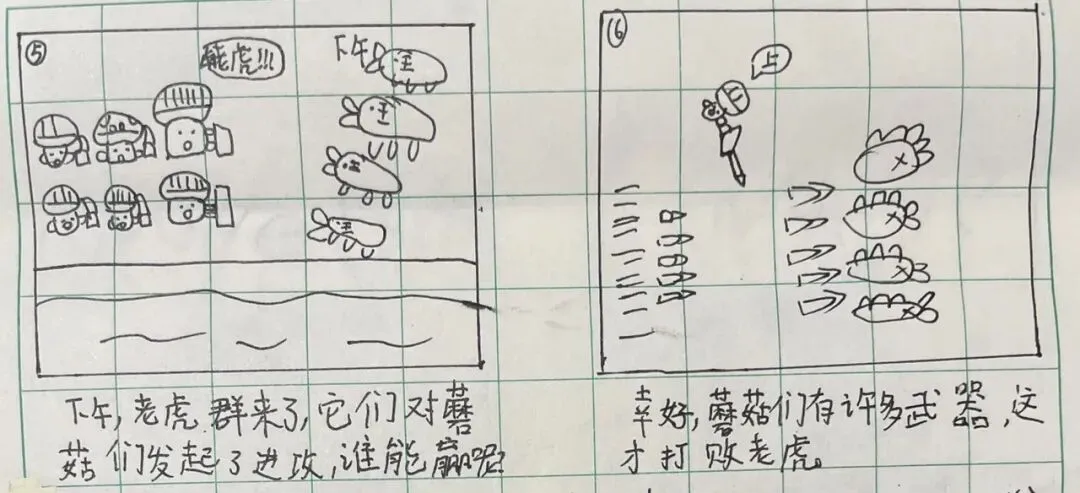 ⑤
老虎!!!
下午
王
王
王
王
下午,老虎群来了,它们对蘑
菇们发起了进攻,谁能赢呢
⑥
上
上
幸好,蘑菇们有许多武器,这
才打败老虎。